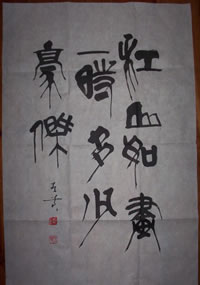 江山如畫
一時多少
豪傑